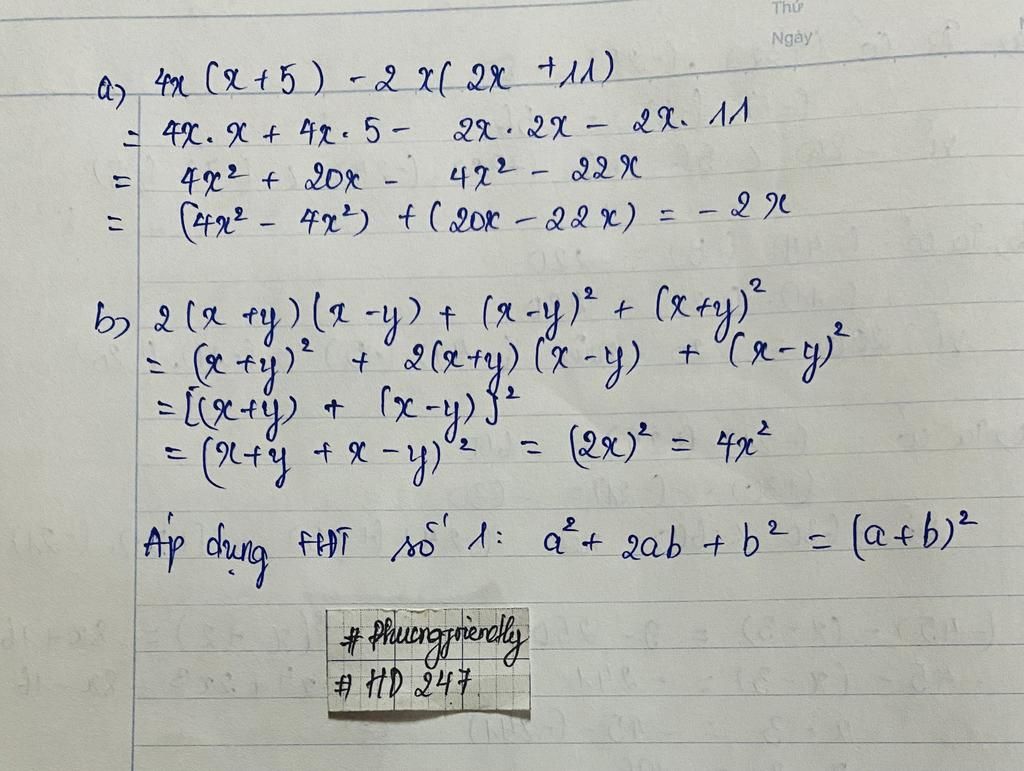 Thứ
Ngày
a) 4x (x + 5) - 2 x( 2x + 11)
= 4x. x + 4x. 5 - 2x. 2x - 2x. 11
= 4x² + 20x - 4x² - 22x
= (4x² - 4x²) + ( 20x - 22x) = - 2x
b) 2(x +y)(x -y) + (x-y)² + (x+y)²
= (x +y)² + 2(x+y) (x-y) + (x-y)²
=[(x+y) + (x-y)}²
= (x+y +x -y)² = (2x)² = 4x²
Áp dụng HĐT số 1: a² + 2ab + b² = (a+b)²
# Phuongfriendly
# HD 247